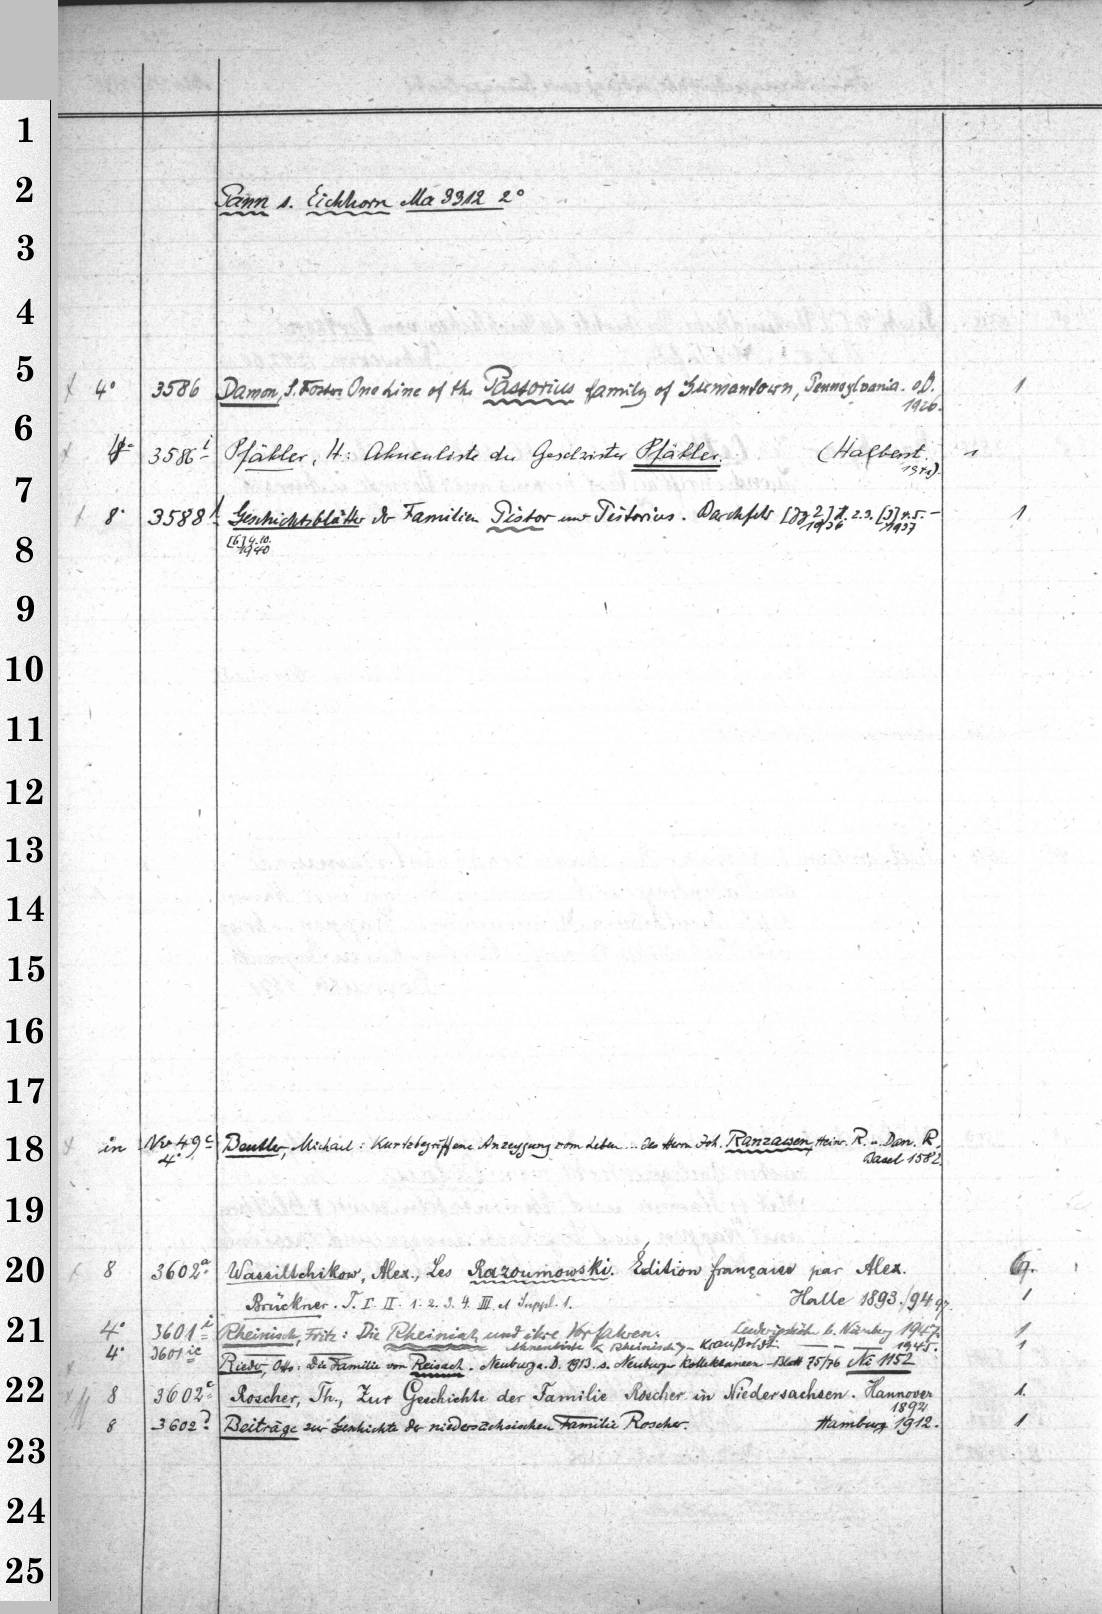 1
2
Pann s. Eichhorn Ma 3312 2°
3
4
5
4° 3586 Damon, S. Foster: One Line of the Pastorius family of Germantown, Pennsylvania. o.O. 1
1926.
6
4° 3586 i Pfähler, H: Ahnenliste der Geschwister Pfähler. (Halberst. 1
7
8° 3588 Geschichtsblätter der Familien Pistor und Pistorius. Darchfeld [Jg 2] 1. 2.3. [3] 4.5.– 1
1936 1937
[6] 9.10.
1940
8
9
10
11
12
13
14
15
16
17
18
in Nv 49 c Beutler, Michael: Kurtzbegriffene Anzeygung vom Leben ... des Herrn Joh. Ranzawen, Heinr. R. u. Dan. R.
4° Basel 1582.
19
20
8 3602 a Wassiltchikow, Alex., Les Razoumowski. Édition française par Alex.
Brückner. T. I II 1. 2. 3. 4. III et Suppl. 1. Halle 1893./94 1
21
4° 3601 i Rheinisch, Fritz: Die Rheinisch und ihre Vorfahren. b. Nürnberg 1947. 1
Ahnenliste Rheinisch – Kraußoldt — — — 1945.
4° 3601 ic Rieder, Otto: Die Familie von Reisach. Neuburg a. D. 1913. s. Neuburger Kollektaneen-Blatt 75/76 Nc 1152 1
22
8 3602 c Roscher, Th., Zur Geschichte der Familie Roscher in Niedersachsen. Hannover 1.
1892
8 3602 Beiträge zur Geschichte der niedersächsischen Familie Roscher. Hamburg 1912. 1
23
24
25